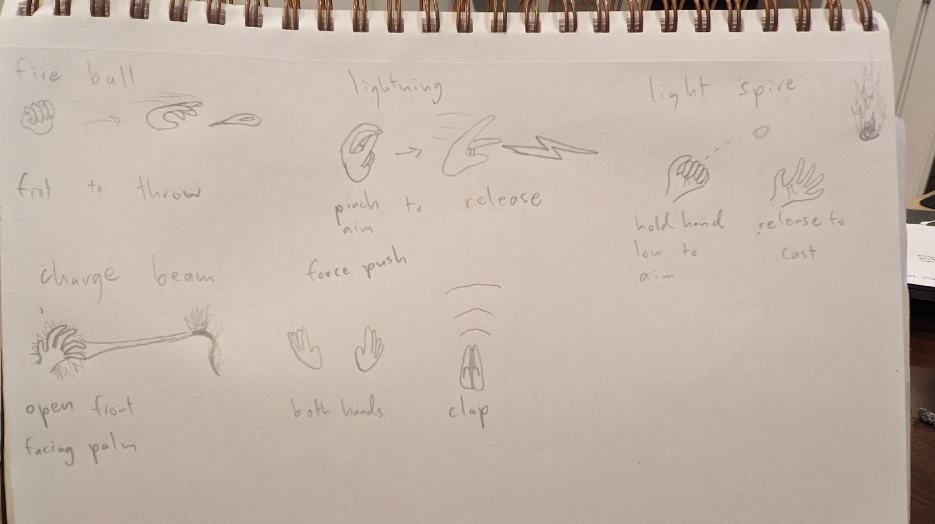 fire ball
fist to throw
lightning
pinch to release
aim
light spire
hold hand
low to
aim
release to
cast
charge beam
open front
facing palm
force push
both hands
clap